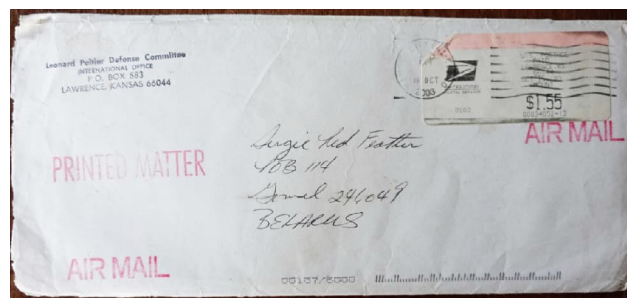 Leonard Peltier Defense Committee
INTERNATIONAL OFFICE
P.O. BOX 583
LAWRENCE, KANSAS 66044
OCT
2003
$1.55
AIR MAIL
PRINTED MATTER
Red Feather
POB 114
Gomel 246049
BELARUS
AIR MAIL